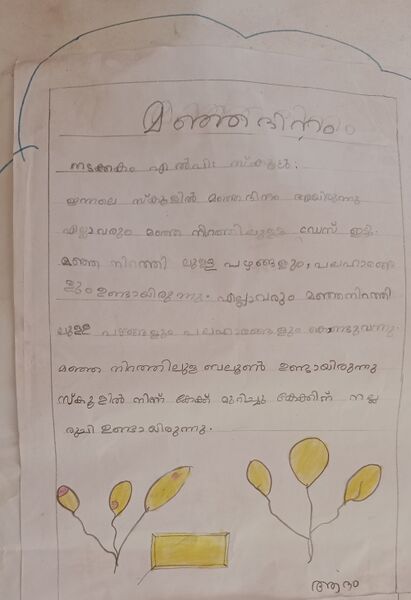 മഞ്ഞദിനം
നടക്കകം എൽപി സ്കൂൾ:
ഇന്നലെ സ്കൂളിൽ മഞ്ഞദിനം ആയിരുന്നു
എല്ലാവരും മഞ്ഞ നിറത്തിലുള്ള ഡ്രസ് ഇട്ടു.
മഞ്ഞ നിറത്തി ലുള്ള പഴങ്ങളും, പലഹാരങ്ങ
ളും ഉണ്ടായിരുന്നു. എല്ലാവരും മഞ്ഞനിറത്തി
ലുള്ള പഴങ്ങളും പലഹാരങ്ങളും കൊണ്ടുവന്നു.
മഞ്ഞ നിറത്തിലുള്ള ബലൂൺ ഉണ്ടായിരുന്നു
സ്കൂളിൽ നിന്ന് കേക്ക് മുറിച്ചു കേക്കിന് നല്ല
രുചി ഉണ്ടായിരുന്നു.